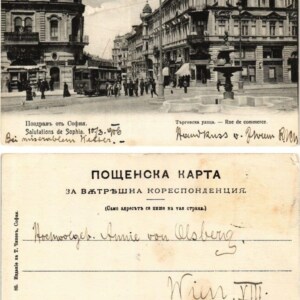 Поздравъ отъ София.
Salutations de Sophia.
Търговска улица. — Rue de commerce
10/3. 906
Bei miserablem Wetter.
Handkuss v.
ПОЩЕНСКА КАРТА
ЗА ВѪТРѢШНА КОРЕСПОНДЕНЦИЯ.
(Само адресътъ се пише на тая страна.)
Hochwolgeb. Annie von Olsberg
Wien, VIII.
Издание на Т. Чиповъ, София.